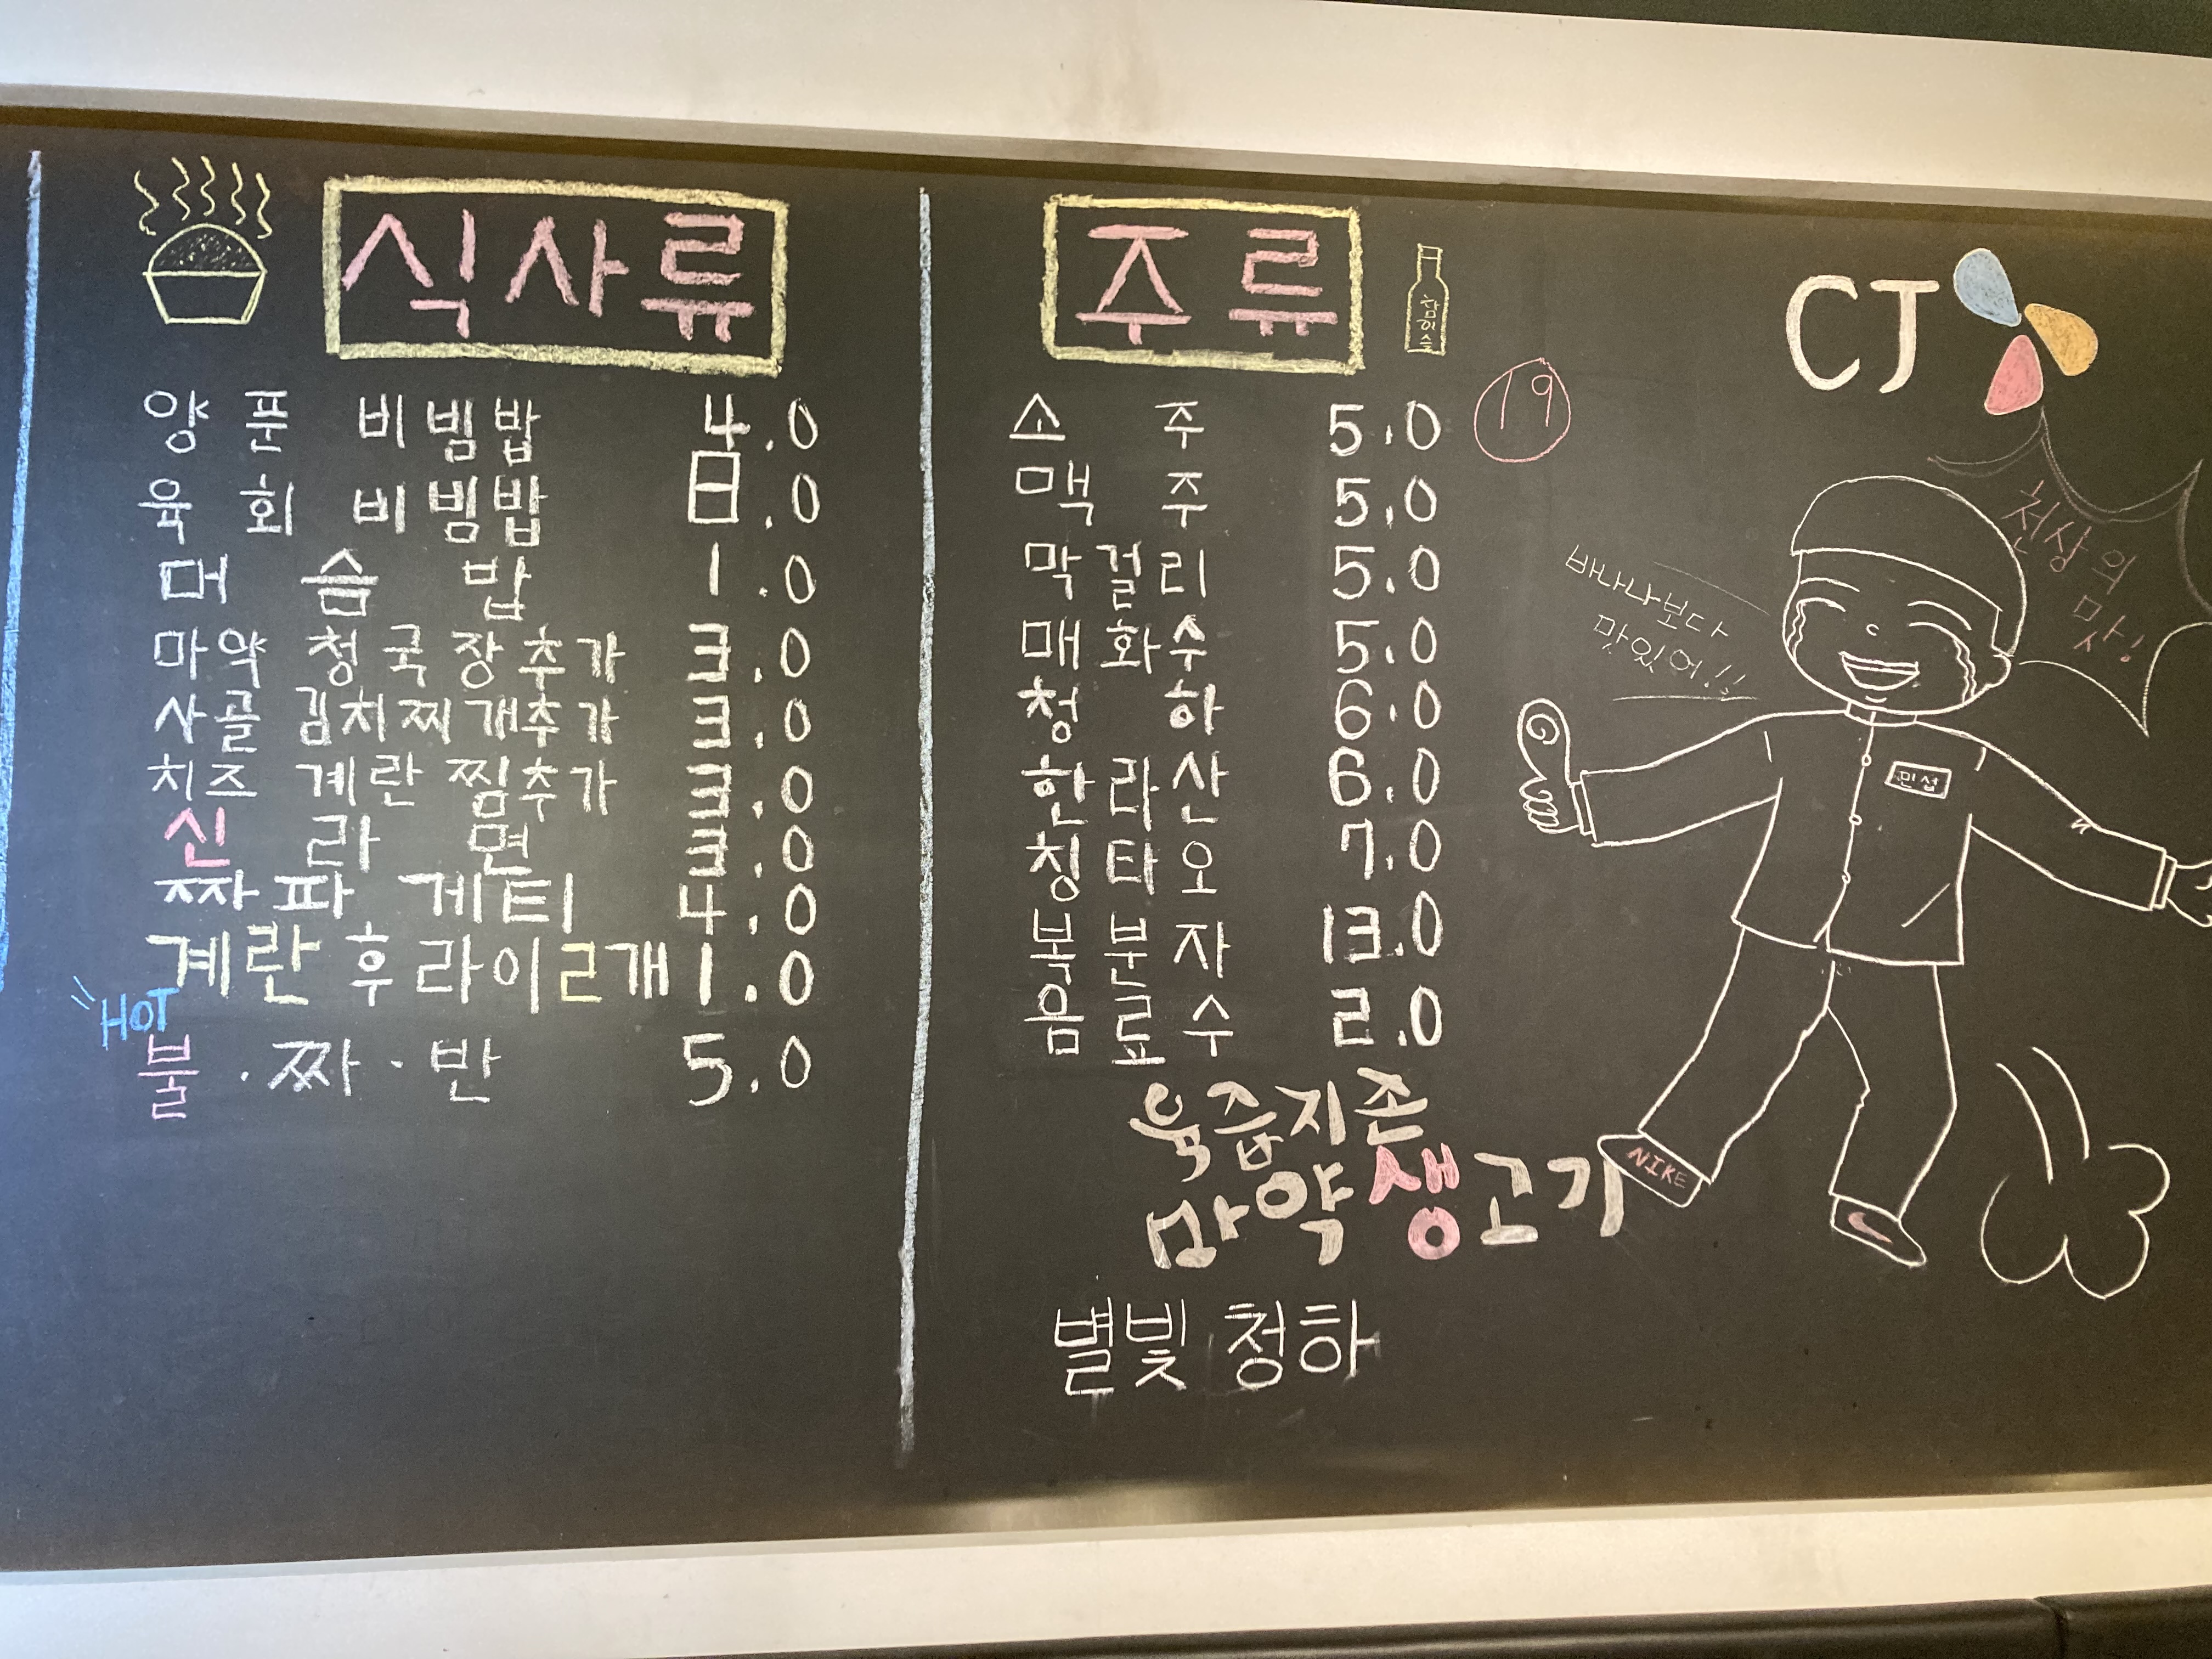 식사류
양푼 비빔밥 4.0
육회 비빔밥 8.0
머슴밥 1.0
마약 청국장추가 3.0
사골 김치찌개추가 3.0
치즈 계란찜추가 3.0
신라면 3.0
짜파게티 4.0
계란후라이2개 1.0
HOT
불·짜·반 5.0
주류
참이슬
19
소주 5.0
맥주 5.0
막걸리 5.0
매화수 5.0
청하 6.0
한라산 6.0
칭타오 7.0
복분자 13.0
음료수 2.0
육즙지존
마약생고기
별빛 청하
CJ
천상의
맛!
바나나보다
맛있어!!
민섭
NIKE